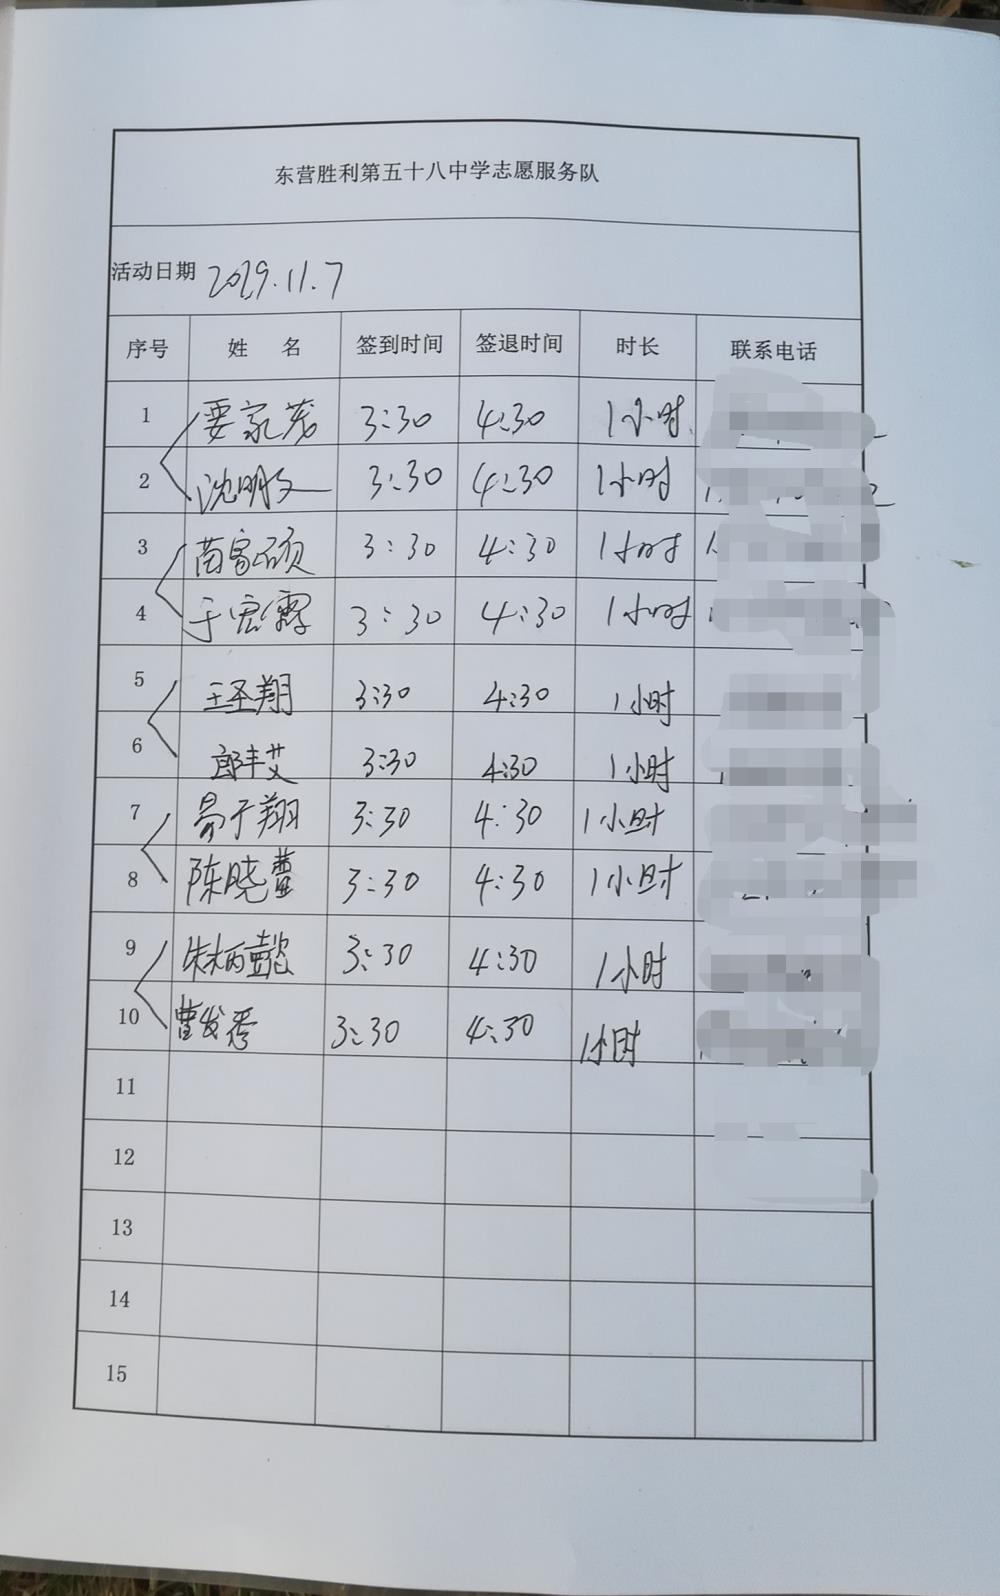 东营胜利第五十八中学志愿服务队
活动日期 2019.11.7
序号 姓 名 签到时间 签退时间 时长 联系电话
1 要家茂 3:30 4:30 1小时
2 沈明文 3:30 4:30 1小时
3 苗家硕 3:30 4:30 1小时
4 于宏霖 3:30 4:30 1小时
5 王圣翔 3:30 4:30 1小时
6 郎丰艾 3:30 4:30 1小时
7 易于翔 3:30 4:30 1小时
8 陈晓蕾 3:30 4:30 1小时
9 朱炳懿 3:30 4:30 1小时
10 曹发秀 3:30 4:30 1小时
11
12
13
14
15